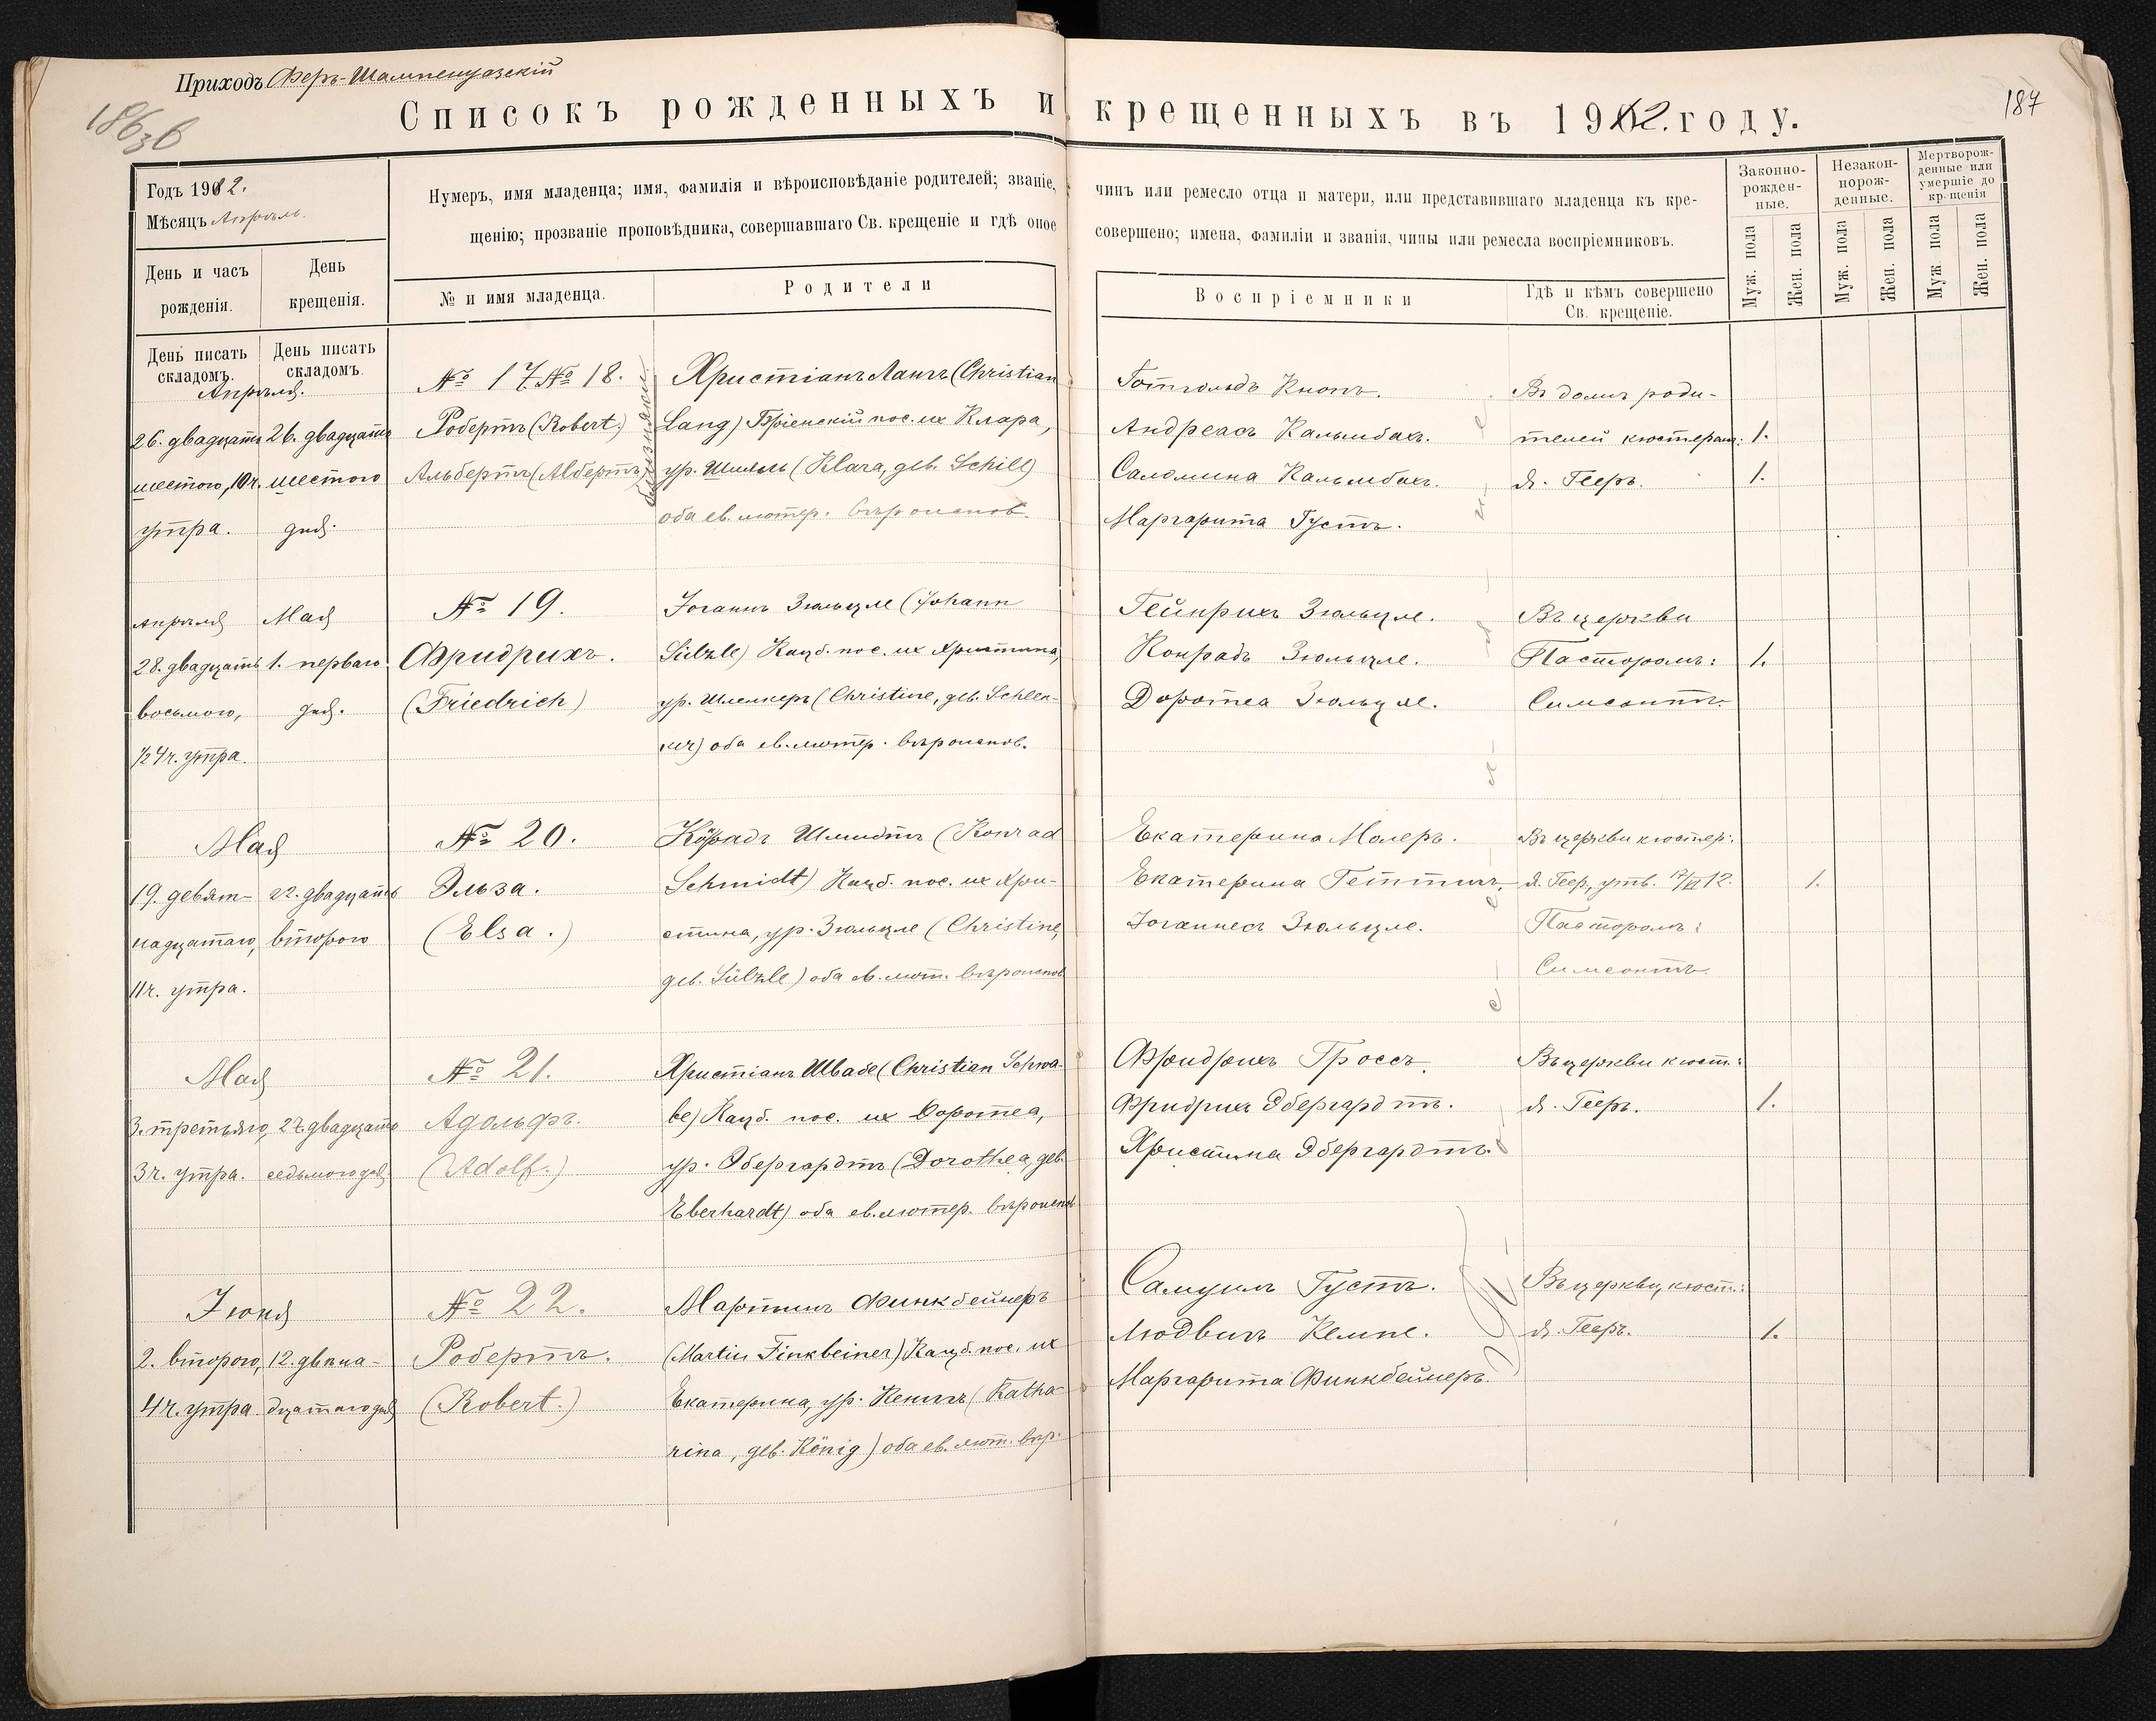 Приходъ Феръ-Шампенуазскій
Списокъ рожденныхъ и крещенныхъ въ 1912. году.
187
Годъ 1912.
Мѣсяцъ Апрѣль.
Нумеръ, имя младенца; имя, фамилія и вѣроисповѣданіе родителей; званіе, чинъ или ремесло отца и матери, или представившаго младенца къ кре-
щенію; прозваніе проповѣдника, совершавшаго Св. крещеніе и гдѣ оное совершено; имена, фамиліи и званія, чины или ремесла воспріемниковъ.
Законно-
рожден-
ные.
Незакон-
норож-
денные.
Мертворож-
денные или
умершіе до
крещенія
Муж. пола
Жен. пола
Муж. пола
Жен. пола
Муж. пола
Жен. пола
День и часъ
рожденія.
День
крещенія.
№ и имя младенца.
Родители
Воспріемники
Гдѣ и кѣмъ совершено
Св. крещеніе.
День писать
складомъ.
День писать
складомъ.
Апрѣля.
26. двадцать
шестого, 10ч.
утра.
26. двадцать
шестого
дня.
№ 17 № 18.
Робертъ (Robert.)
Альбертъ (Albертъ)
близнецы
Христіанъ Лангъ (Christian
Lang) Бріенскій пос. их Клара,
ур. Шилль (Klara, geb. Schill)
оба ев. лютер. вѣроиспов.
Готгольдъ Кнопъ.
Андреасъ Кальмбахъ.
Саломина Кальмбахъ.
Маргарита Густъ.
Въ домѣ роди-
телей кюстеромъ:
Я. Гееръ.
1.
1.
Апрѣля
28. двадцать
восьмого,
½4ч. утра.
Мая
1. перваго
дня.
№ 19.
Фридрихъ.
(Friedrich)
Іоганнъ Зюльцле (Johann
Sülzle) Кацб. пос. их Христина,
ур. Шленкеръ (Christine, geb. Schlen-
ker) оба ев. лютер. вѣроиспов.
Гейнрихъ Зюльцле.
Конрадъ Зюльцле.
Доротеа Зюльцле.
Въ церкви
Пасторомъ:
Симсонтъ.
1.
Мая
19. девят-
надцатаго,
11ч. утра.
22. двадцать
второго
№ 20.
Эльза.
(Elsa.)
Конрадъ Шмидтъ (Konrad
Schmidt) Кацб. пос. их Хри-
стина, ур. Зюльцле (Christine,
geb. Sülzle) оба ев. лют. вѣроиспов
Екатерина Молеръ.
Екатерина Геттигъ,
Іоганнесъ Зюльцле.
Въ церкви кюстер:
Я. Гееръ, утв. 17/VI 12.
Пасторомъ:
Симсонтъ.
1.
Мая
3. третьяго,
3ч. утра.
27. двадцать
седьмого дня
№ 21.
Адольфъ.
(Adolf.)
Христіанъ Швабе (Christian Schwa-
be) Кацб. пос. их Доротеа,
ур. Эбергардтъ (Dorothea, geb.
Eberhardt) оба ев. лютер. вѣроиспов
Фридрихъ Гроссъ.
Фридрихъ Эбергардтъ.
Христина Эбергардтъ.
Въ церкви кюст.:
Я. Гееръ.
1.
Іюня
2. второго,
4ч. утра
12. двѣна-
дцатаго дня
№ 22.
Робертъ.
(Robert.)
Мартинъ Финкбейнеръ
(Martin Finkbeiner) Кацб. пос. их
Екатерина, ур. Кенигъ (Katha-
rina, geb. König) оба ев. лют. вѣр.
Самуилъ Густъ.
Людвигъ Кемпе.
Маргарита Финкбейнеръ.
Въ церкви, кюст.:
Я. Гееръ.
1.